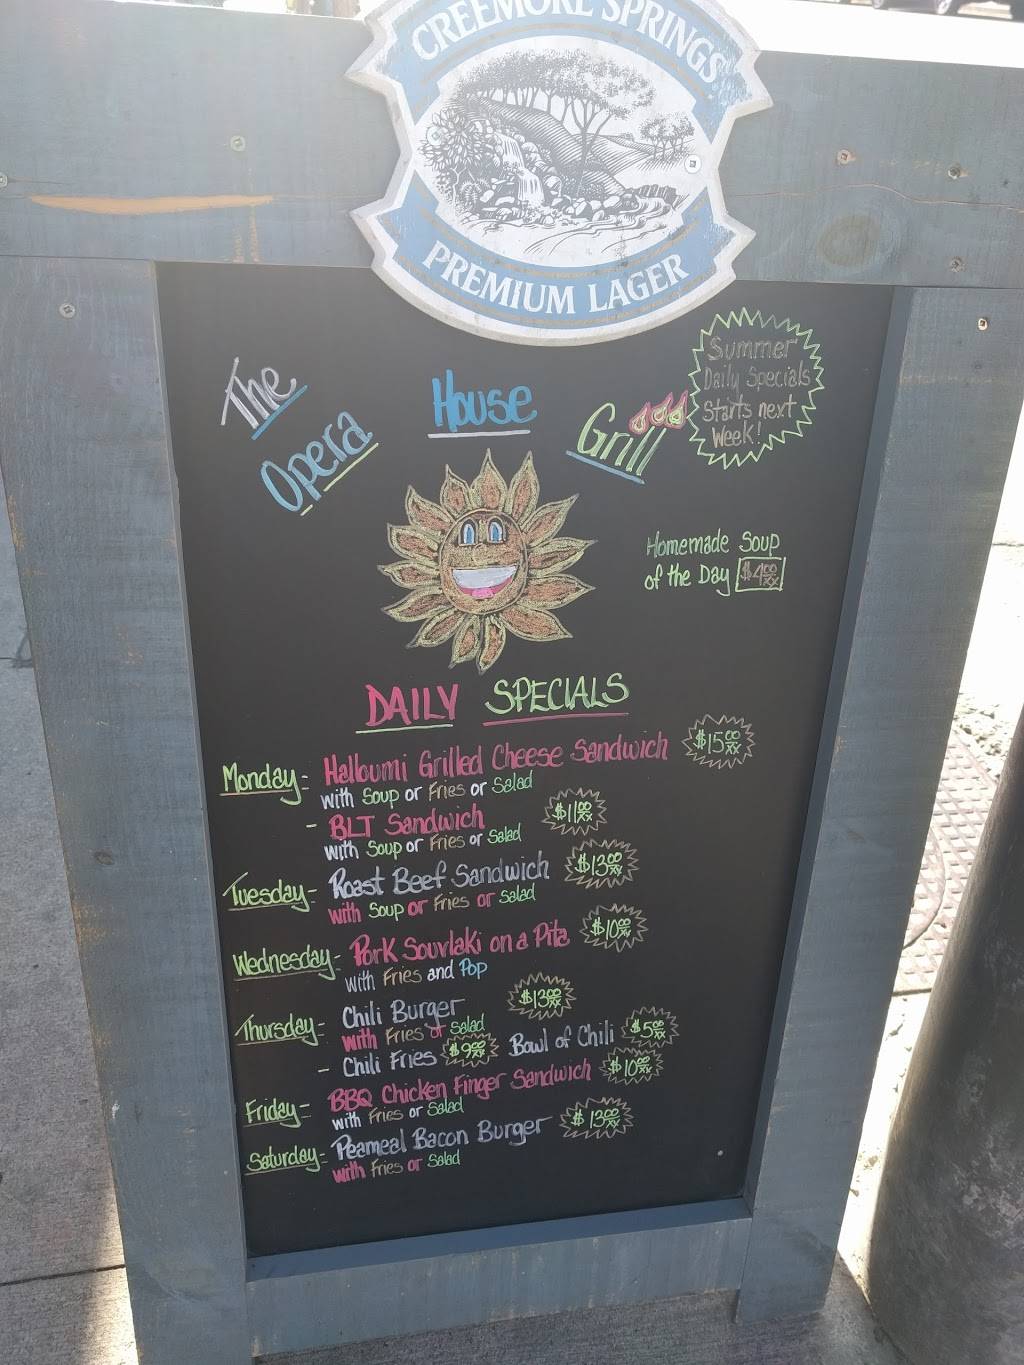 CREEMORE SPRINGS
PREMIUM LAGER
The
Opera
House
Grill
Summer
Daily Specials
Starts next
Week!
Homemade Soup
of the Day $4.00
DAILY SPECIALS
Monday - Halloumi Grilled Cheese Sandwich $15.00
with Soup or Fries or Salad
- BLT Sandwich $11.00
with Soup or Fries or Salad
Tuesday - Roast Beef Sandwich $13.00
with Soup or Fries or Salad
Wednesday - Pork Souvlaki on a Pita $10.00
with Fries and Pop
Thursday - Chili Burger $13.00
with Fries or Salad
- Chili Fries $9.00 Bowl of Chili $5.00
Friday - BBQ Chicken Finger Sandwich $10.00
with Fries or Salad
Saturday - Peameal Bacon Burger $13.00
with Fries or Salad